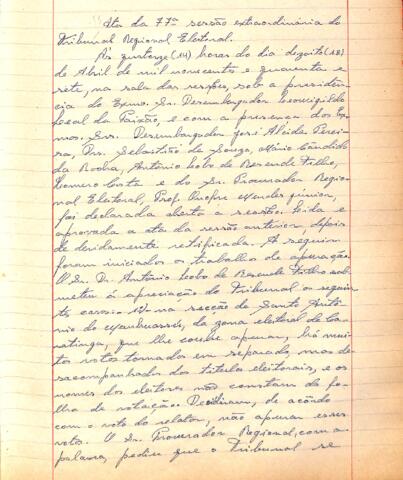 Ata da 77ª sessão extraordinária do
Tribunal Regional Eleitoral.
Às quatorze (14) horas do dia dezoito (18)
de Abril de mil novecentos e quarenta e
sete, na sala das sessões, sob a presidên-
cia do Exmo. Sr. Desembargador Leovigildo
Leal da Paixão, e com a presença dos Ex-
mos. Srs. Desembargador José Alcides Perei-
ra, Drs. Sebastião de Souza, Mário Cândido
da Rocha, Antônio Lobo de Resende Filho,
Homero Costa e do Sr. Procurador Regio-
nal Eleitoral, Prof. Onofre Mendes Júnior,
foi declarada aberta a sessão. Lida e
aprovada a ata da sessão anterior, depois
de devidamente retificada. A seguir
foram iniciados os trabalhos de apuração.
O Sr. Dr. Antônio Lobo de Resende Filho sub-
meteu à apreciação do Tribunal o seguin-
te caso: na secção de Santo Antô-
nio do Manhuassú, da zona eleitoral de Ca-
ratinga, que lhe coube apurar, há mui-
tos votos tomados em separado, mas de-
sacompanhados dos titulos eleitorais, e os
nomes dos eleitores não constam da fo-
lha de votação. Decidiram, de acôrdo
com o voto do relator, não apurar esses
votos. O Sr. Procurador Regional, com a
palavra, pediu que o Tribunal se